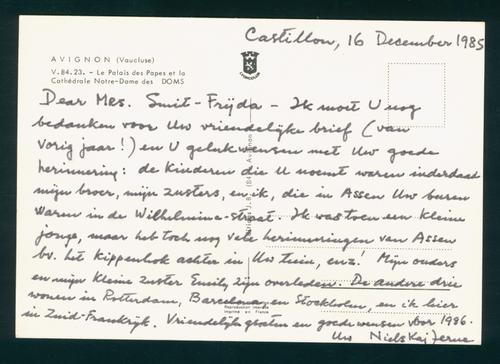 Castillon, 16 December 1985
AVIGNON (Vaucluse)
V.84.23. - Le Palais des Papes et la
Cathédrale Notre-Dame des DOMS
Dear Mrs. Smit-Frijda - Ik moet U nog
bedanken voor Uw vriendelijke brief (van
vorig jaar!) en U geluk wensen met Uw goede
herinnering: de kinderen die U noemt waren inderdaad
mijn broer, mijn zusters, en ik, die in Assen Uw buren
waren in de Wilhelmina-straat. Ik was toen een kleine
jonge, maar heb toch nog vele herinneringen van Assen
bv. het kippenhok achter in Uw tuin, enz! Mijn ouders
en mijn kleine zuster Emily zijn overleden. De andere drie
wonen in Rotterdam, Barcelona, en Stockholm, en ik hier
Reproduction interdite
imprimé en France
in Zuid-Frankrijk. Vriendelijke groeten en goede wensen voor 1986.
Uw Niels Kaj Jerne